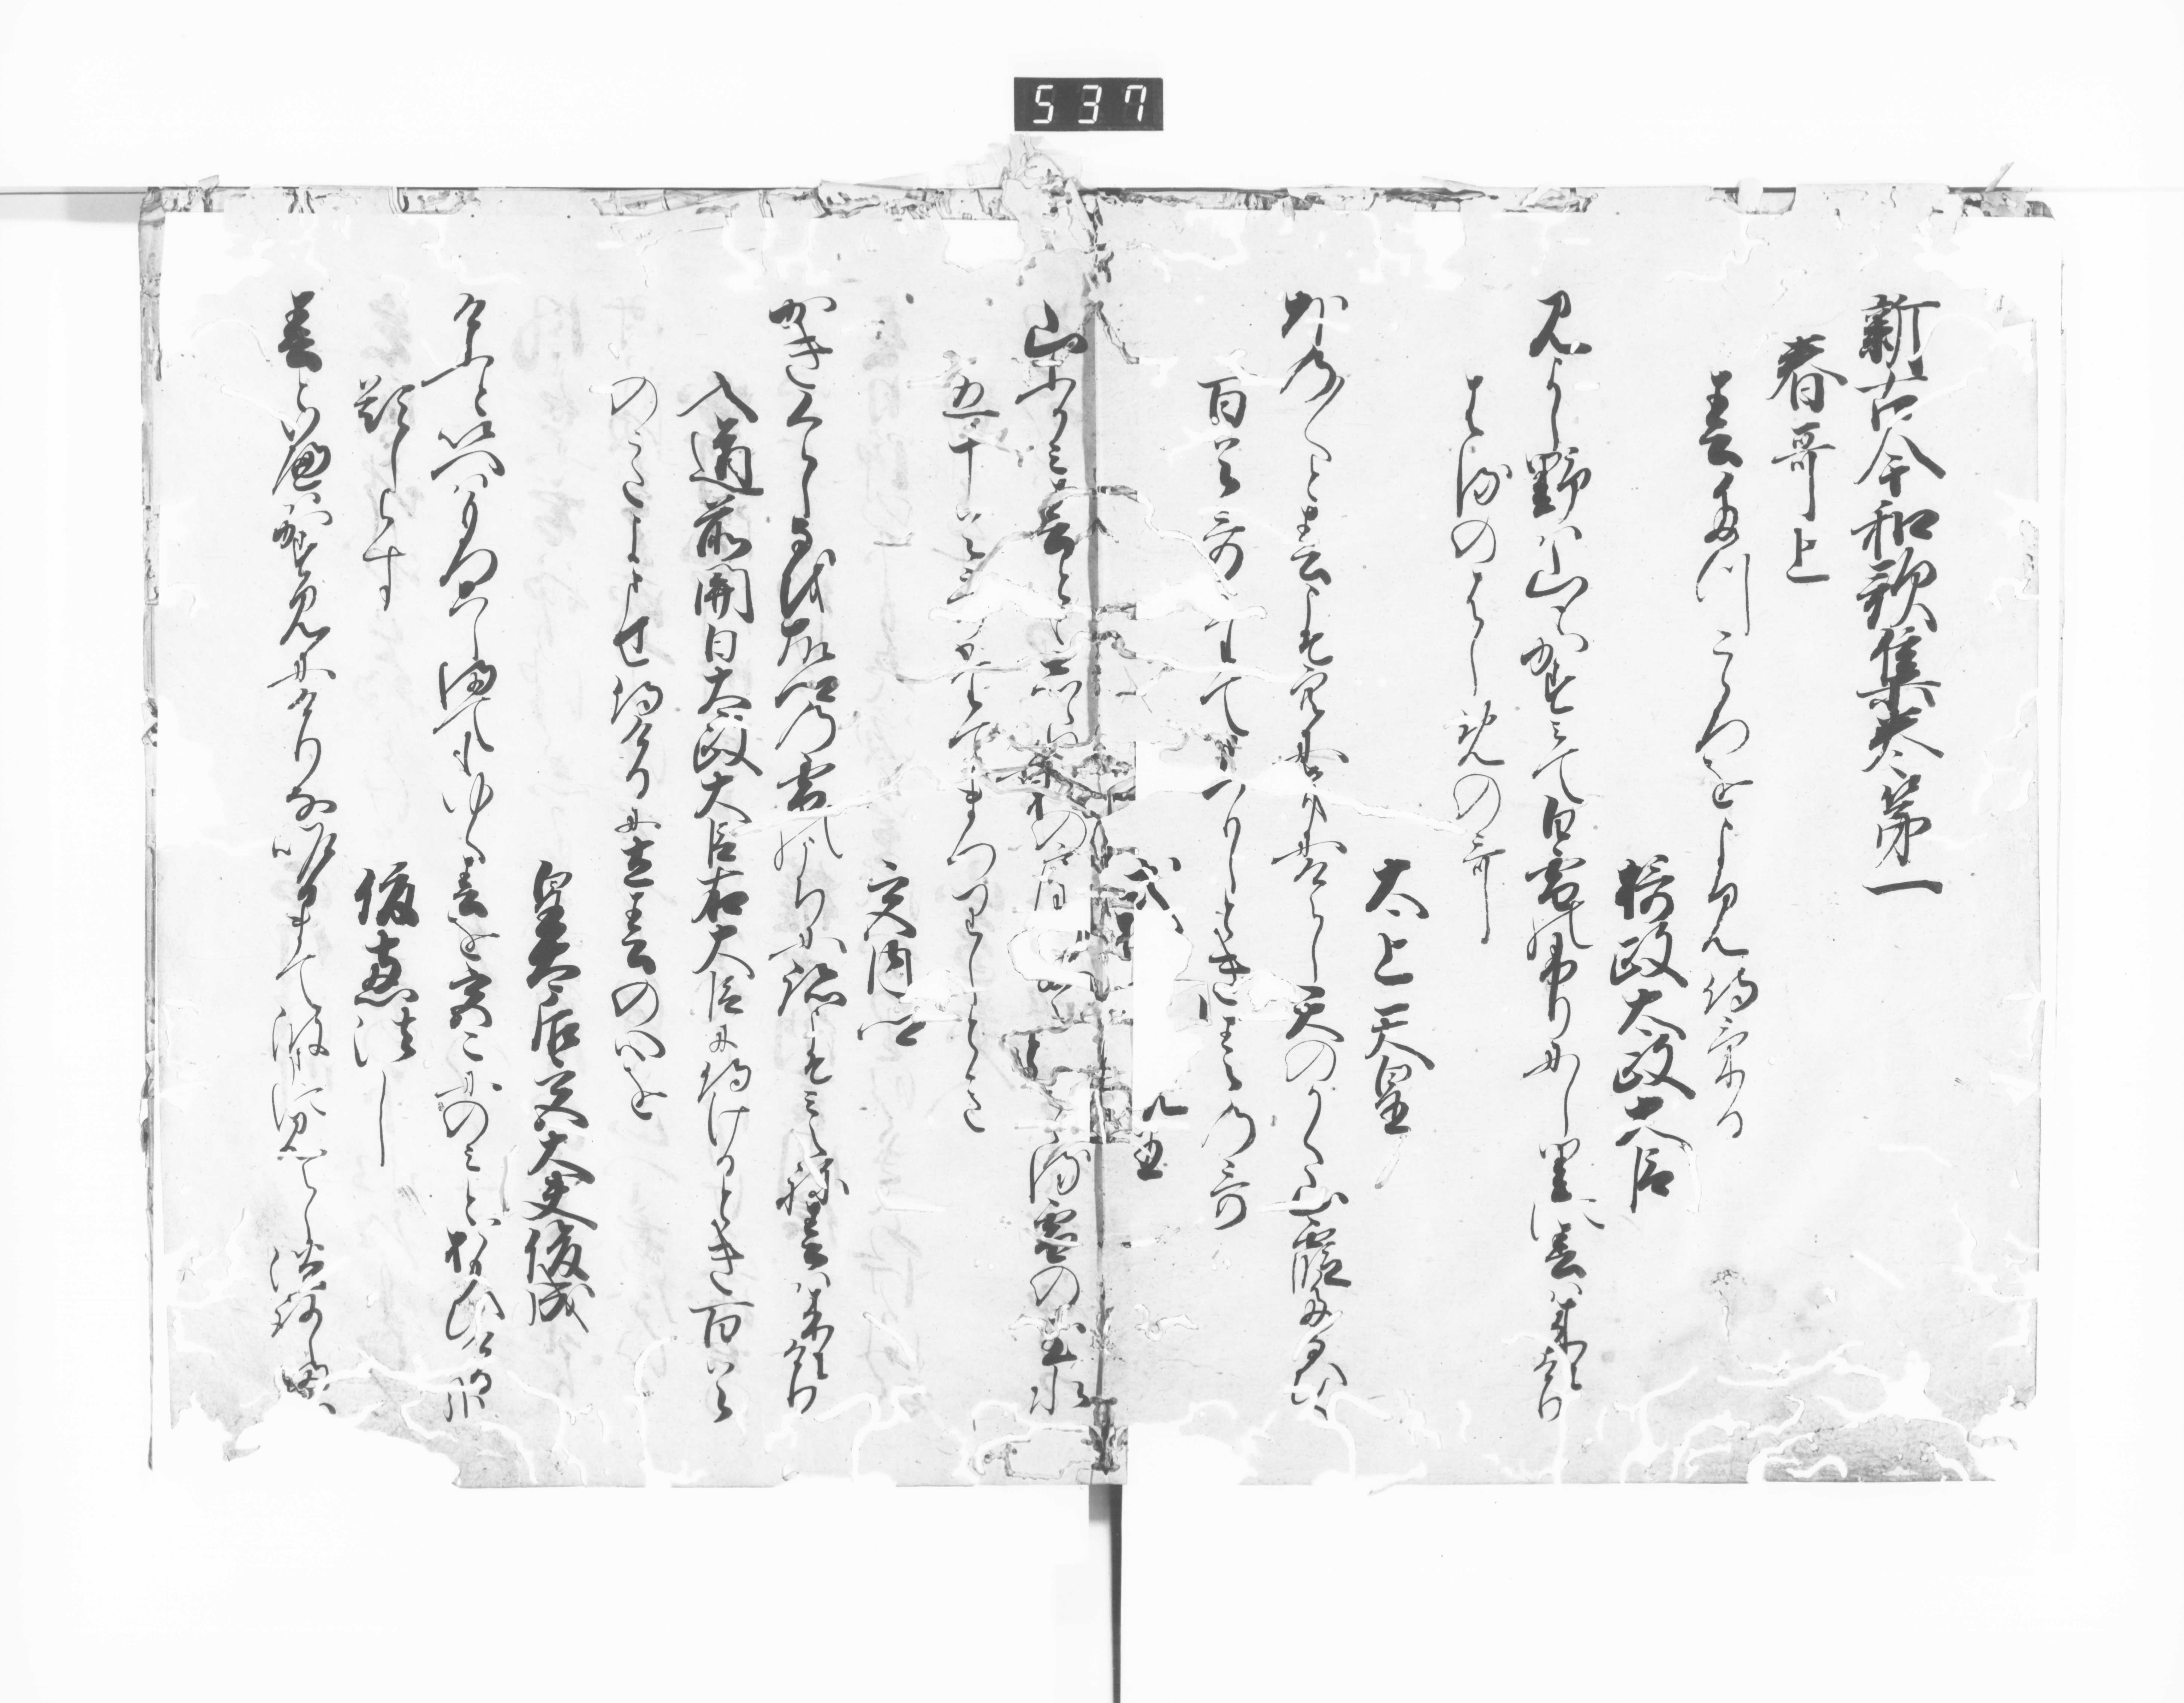 537
新古今和歌集巻第一
春哥上
春たつこゝろをよみ侍ける
摂政太政大臣
みよし野は山もかすみて白雪のふりにし里に春は来にけり
はるのはしめの哥
太上天皇
ほの〱と春こそ空にきにけらし天のかく山霞たなひく
百首哥たてまつりしとき春の哥
式子内親王
山ふかみ春ともしらぬ松の戸にたえ〱かゝる雪の玉水
五十首哥たてまつりしとき
宮内卿
かきくらし猶故郷の雪のうちに跡こそみえね春は来にけり
入道前関白太政大臣右大臣に侍けるとき百首
哥よませ侍けるに立春の心を
皇太后宮大夫俊成
けふといへはもろこしまてもゆく春を都にのみとおもひける哉
題しらす
俊恵法し
春といへは霞にけりなきのふまて波まに見えし淡路嶋山